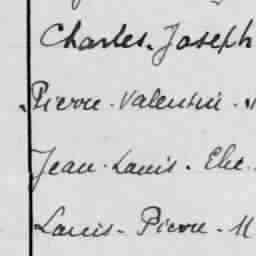 Charles. Joseph
Pierre. Valentin.
Jean. Louis. Elie.
Louis. Pierre. M